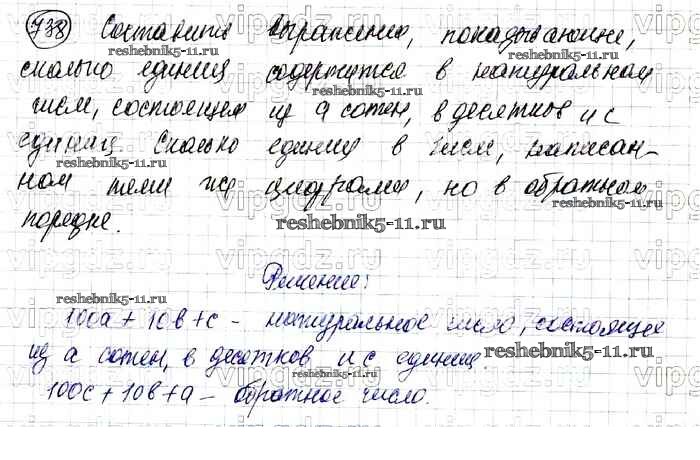 738 Составить выражение, показывающее,
сколько единиц содержится в натуральном
числе, состоящем из a сотен, b десятков и c
единиц. Сколько единиц в числе, написан-
ном теми же цифрами, но в обратном
порядке.
Решение:
100a + 10b + c - натуральное число, состоящее
из a сотен, b десятков и c единиц.
100c + 10b + a - обратное число.
reshebnik5-11.ru
reshebnik5-11.ru
reshebnik5-11.ru
reshebnik5-11.ru
reshebnik5-11.ru
reshebnik5-11.ru
reshebnik5-11.ru
reshebnik5-11.ru
vipgdz.ru